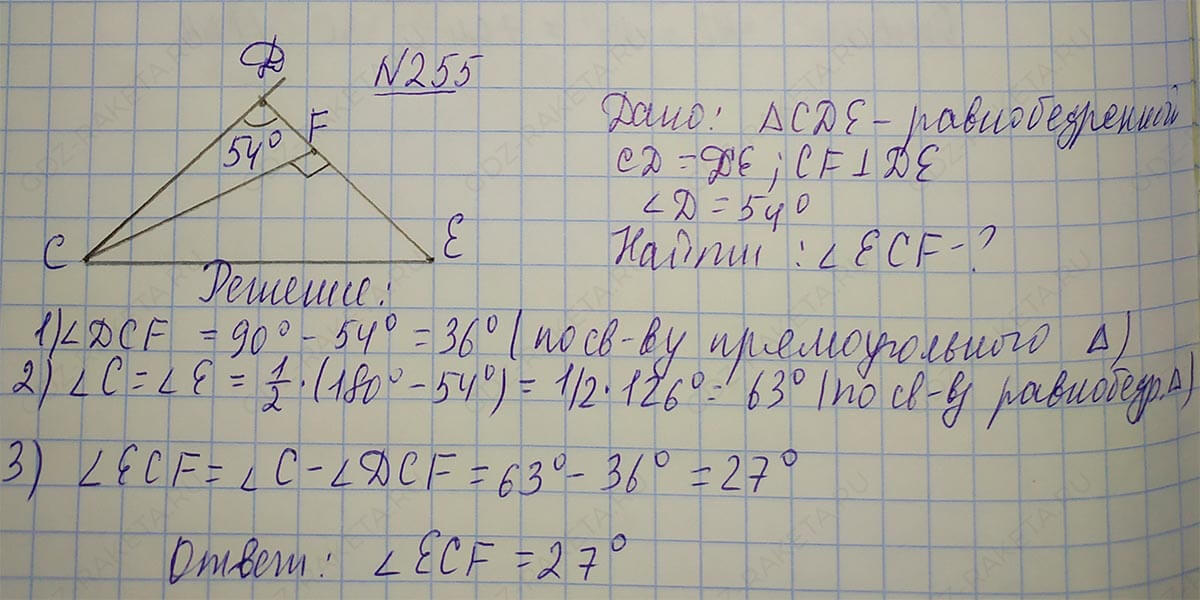 N255
D
F
54°
C
E
Дано: △CDE – равнобедренной
CD = DE ; CF ⊥ DE
∠D = 54°
Найти : ∠ECF – ?
Решение:
1) ∠DCF = 90° – 54° = 36° (по св-ву прямоугольного △)
2) ∠C = ∠E = 1/2 · (180° – 54°) = 1/2 · 126° = 63° (по св-ву равнобедр. △)
3) ∠ECF = ∠C – ∠DCF = 63° – 36° = 27°
Ответ: ∠ECF = 27°
GDZ-RAKETA.RU